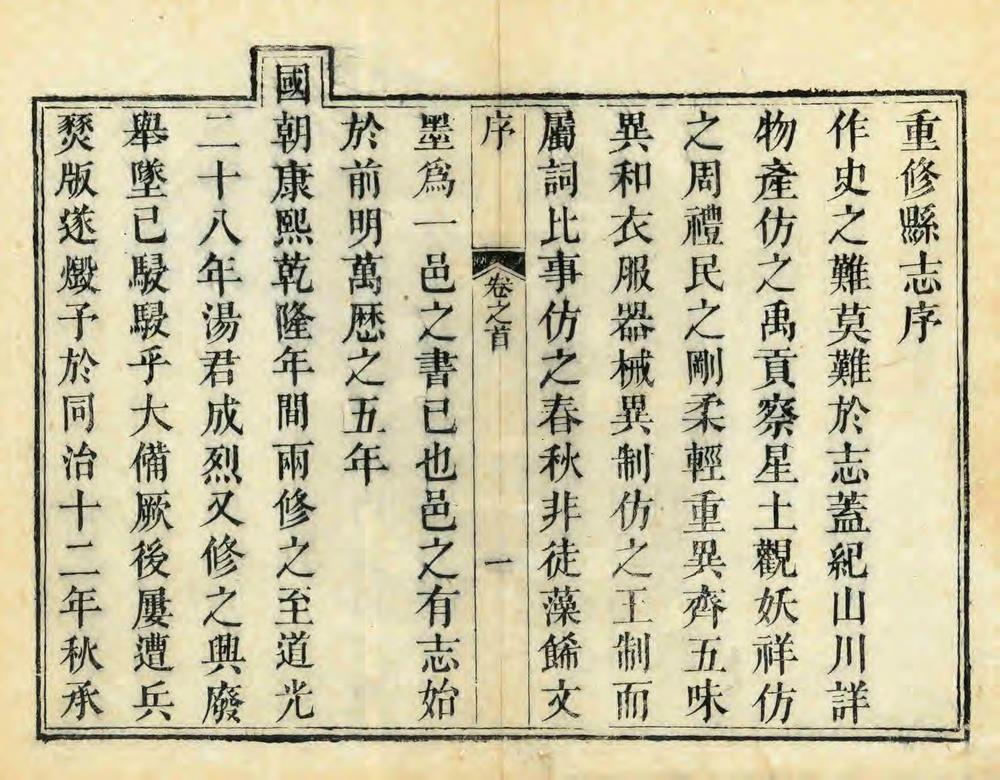 重修縣志序
作史之難莫難於志蓋紀山川詳
物產仿之禹貢察星土觀妖祥仿
之周禮民之剛柔輕重異齊五味
異和衣服器械異制仿之王制而
屬詞比事仿之春秋非徒藻餙文
序 卷之首 一
墨爲一邑之書已也邑之有志始
於前明萬厯之五年
國朝康熙乾隆年間兩修之至道光
二十八年湯君成烈又修之興廢
舉墜已駸駸乎大備厥後屢遭兵
燹版遂燬予於同治十二年秋承